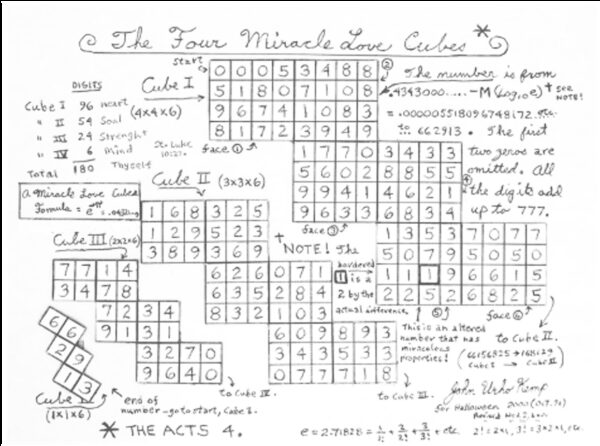 The Four Miracle Love Cubes *
start
DIGITS
Cube I 96 Heart
" II 54 Soul
" III 24 Strenght
" IV 6 Mind
Total 180 Thyself
St. Luke
10:27.
Cube I
(4x4x6)
0 0 0 5 3 4 8 8
5 1 8 0 7 1 0 8
9 6 7 4 1 0 8 3
8 1 7 2 3 9 4 9
face ①
②
The number is from
.4343000.....-M(Log₁₀e) + see
NOTE!
=.000005518096748172 etc.
to 662913. The first
two zeros are
omitted. All
the digits add
up to 777.
1 7 7 0 3 4 3 3
5 6 0 2 8 8 5 5
9 9 4 1 4 6 2 1
9 6 3 3 6 8 3 4
face ③
④
1 3 5 3 7 0 7 7
5 0 7 9 5 0 5 0
1 1 1 9 6 6 1 5
2 2 5 2 6 8 2 5
⑤
face ⑥
to Cube II.
A Miracle Love Cubes
Cube II (3x3x6)
1 6 8 3 2 5
1 2 9 5 2 3
3 8 9 3 6 9
+
NOTE! The
bordered
1 is a
2 by the
actual difference.
6 2 6 0 7 1
6 3 5 2 8 4
8 3 2 1 0 3
6 0 9 8 9 3
3 4 3 5 3 3
0 7 7 7 1 8
to Cube III.
This is an altered
number that has
miraculous
properties!
Cube III (2x2x6)
7 7 1 4
3 4 7 8
7 2 3 4
9 1 3 1
3 2 7 0
9 6 4 0
to Cube IV.
6 6
2 9
1 3
(1x1x6)
end of
number - go to start, Cube I.
* THE ACTS 4.
John Urho Kemp
for Halloween 2000
e = 2.71828 =
2! = 2x1, 3! = 3x2x1, etc.